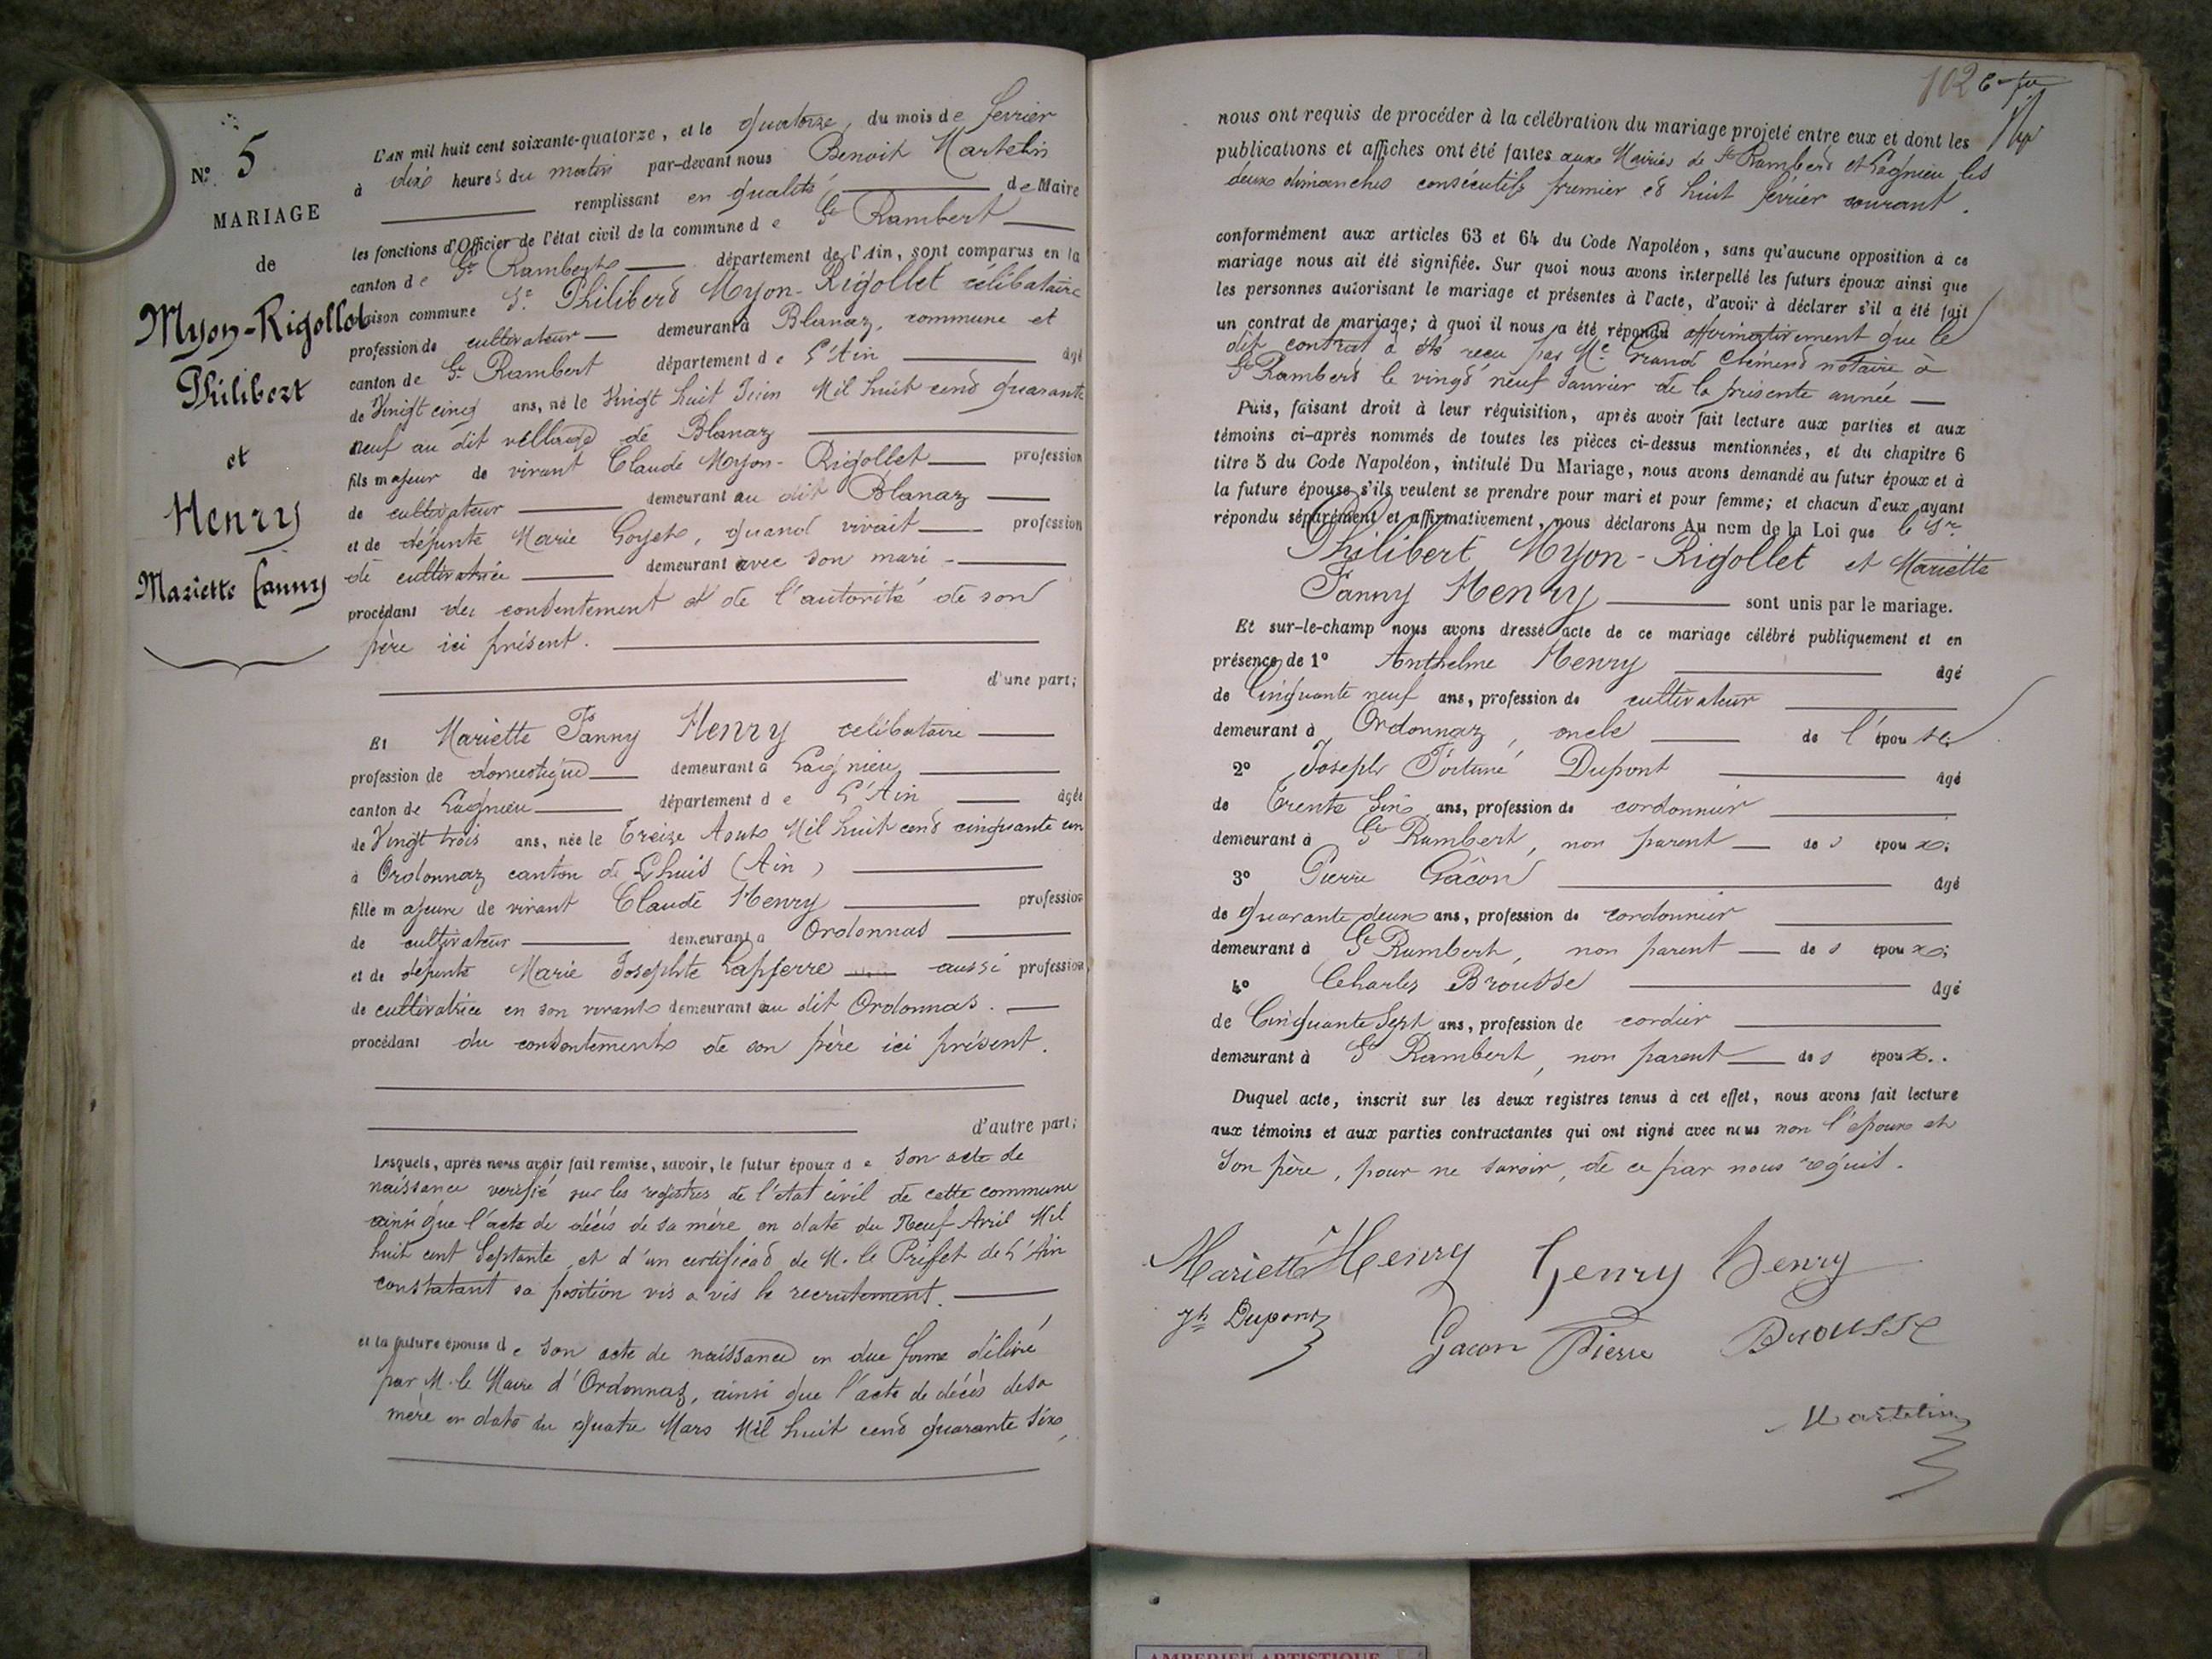 N° 5
MARIAGE
de
Myon-Rigollet
Philibert
et
Henry
Mariette Fanny
L'AN mil huit cent soixante-quatorze, et le quatorze, du mois de fevrier
à dix heures du matin par-devant nous Benoit Martelin
remplissant en qualité de Maire
les fonctions d'Officier de l'état civil de la commune de St Rambert
canton de St Rambert département de l'Ain, sont comparus en la
maison commune Sr Philibert Myon-Rigollet célibataire
profession de cultivateur demeurant à Blanaz, commune et
canton de St Rambert département de L'Ain âgé
de Vingt cinq ans, né le Vingt huit Juin Mil huit cent quarante
neuf au dit village de Blanaz
fils majeur de vivant Claude Myon-Rigollet profession
de cultivateur demeurant au dit Blanaz
et de défunte Marie Goyet, quand vivait profession
de cultivatrice demeurant avec son mari
procédant du consentement et de l'autorité de son
père ici présent.
d'une part;
Et Mariette Fanny Henry celibataire
profession de domestique demeurant à Lagnieu
canton de Lagnieu département de L'Ain âgée
de Vingt trois ans, née le Treize Août Mil huit cent cinquante un
à Ordonnaz canton de Lhuis (Ain)
fille majeure de vivant Claude Henry profession
de cultivateur demeurant à Ordonnas
et de défunte Marie Josephte Lapierre aussi profession
de cultivatrice en son vivant demeurant au dit Ordonnas.
procédant du consentement de son père ici présent.
d'autre part;
Lesquels, après nous avoir fait remise, savoir, le futur époux de son acte de
naissance verifié sur les registres de l'état civil de cette commune
ainsi que l'acte de décès de sa mère en date du Neuf Avril Mil
huit cent Septante, et d'un certificat de M. le Préfet de L'Ain
constatant sa position vis a vis le recrutement.
et la future épouse de son acte de naissance en due forme délivré
par M. le Maire d'Ordonnaz, ainsi que l'acte de décès de sa
mère en date du quatre Mars Mil huit cent quarante six,
102
nous ont requis de procéder à la célébration du mariage projeté entre eux et dont les
publications et affiches ont été faites aux Mairies de St Rambert et Lagnieu les
deux dimanches consécutifs premier et huit fevrier courant.
conformément aux articles 63 et 64 du Code Napoléon, sans qu'aucune opposition à ce
mariage nous ait été signifiée. Sur quoi nous avons interpellé les futurs époux ainsi que
les personnes autorisant le mariage et présentes à l'acte, d'avoir à déclarer s'il a été fait
un contrat de mariage; à quoi il nous a été répondu affirmativement que le
dit contrat a été reçu par Me Grand Clément notaire à
St Rambert le vingt neuf Janvier de la présente année
Puis, faisant droit à leur réquisition, après avoir fait lecture aux parties et aux
témoins ci-après nommés de toutes les pièces ci-dessus mentionnées, et du chapitre 6
titre 5 du Code Napoléon, intitulé Du Mariage, nous avons demandé au futur époux et à
la future épouse s'ils veulent se prendre pour mari et pour femme; et chacun d'eux ayant
répondu séparément et affirmativement, nous déclarons Au nom de la Loi que le Sr
Philibert Myon-Rigollet et Mariette
Fanny Henry sont unis par le mariage.
Et sur-le-champ nous avons dressé acte de ce mariage célébré publiquement et en
présence de 1° Anthelme Henry âgé
de Cinquante neuf ans, profession de cultivateur
demeurant à Ordonnaz, oncle de l'épouse
2° Joseph Fortuné Dupont âgé
de Trente Six ans, profession de cordonnier
demeurant à St Rambert, non parent des époux;
3° Pierre Gâcon âgé
de quarante deux ans, profession de cordonnier
demeurant à St Rambert, non parent des époux;
4° Charles Brousse âgé
de Cinquante Sept ans, profession de cordier
demeurant à St Rambert, non parent des époux.
Duquel acte, inscrit sur les deux registres tenus à cet effet, nous avons fait lecture
aux témoins et aux parties contractantes qui ont signé avec nous non l'époux et
son père, pour ne savoir, de ce par nous requis.
Mariette Henry henry henry
jh Dupont Gacon Pierre Brousse
Martelin
AMBERIEU ARTISTIQUE